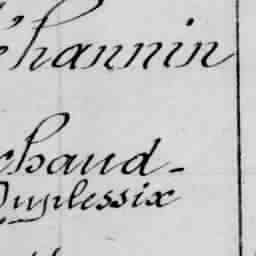 hannin
chaud-
Duplessix